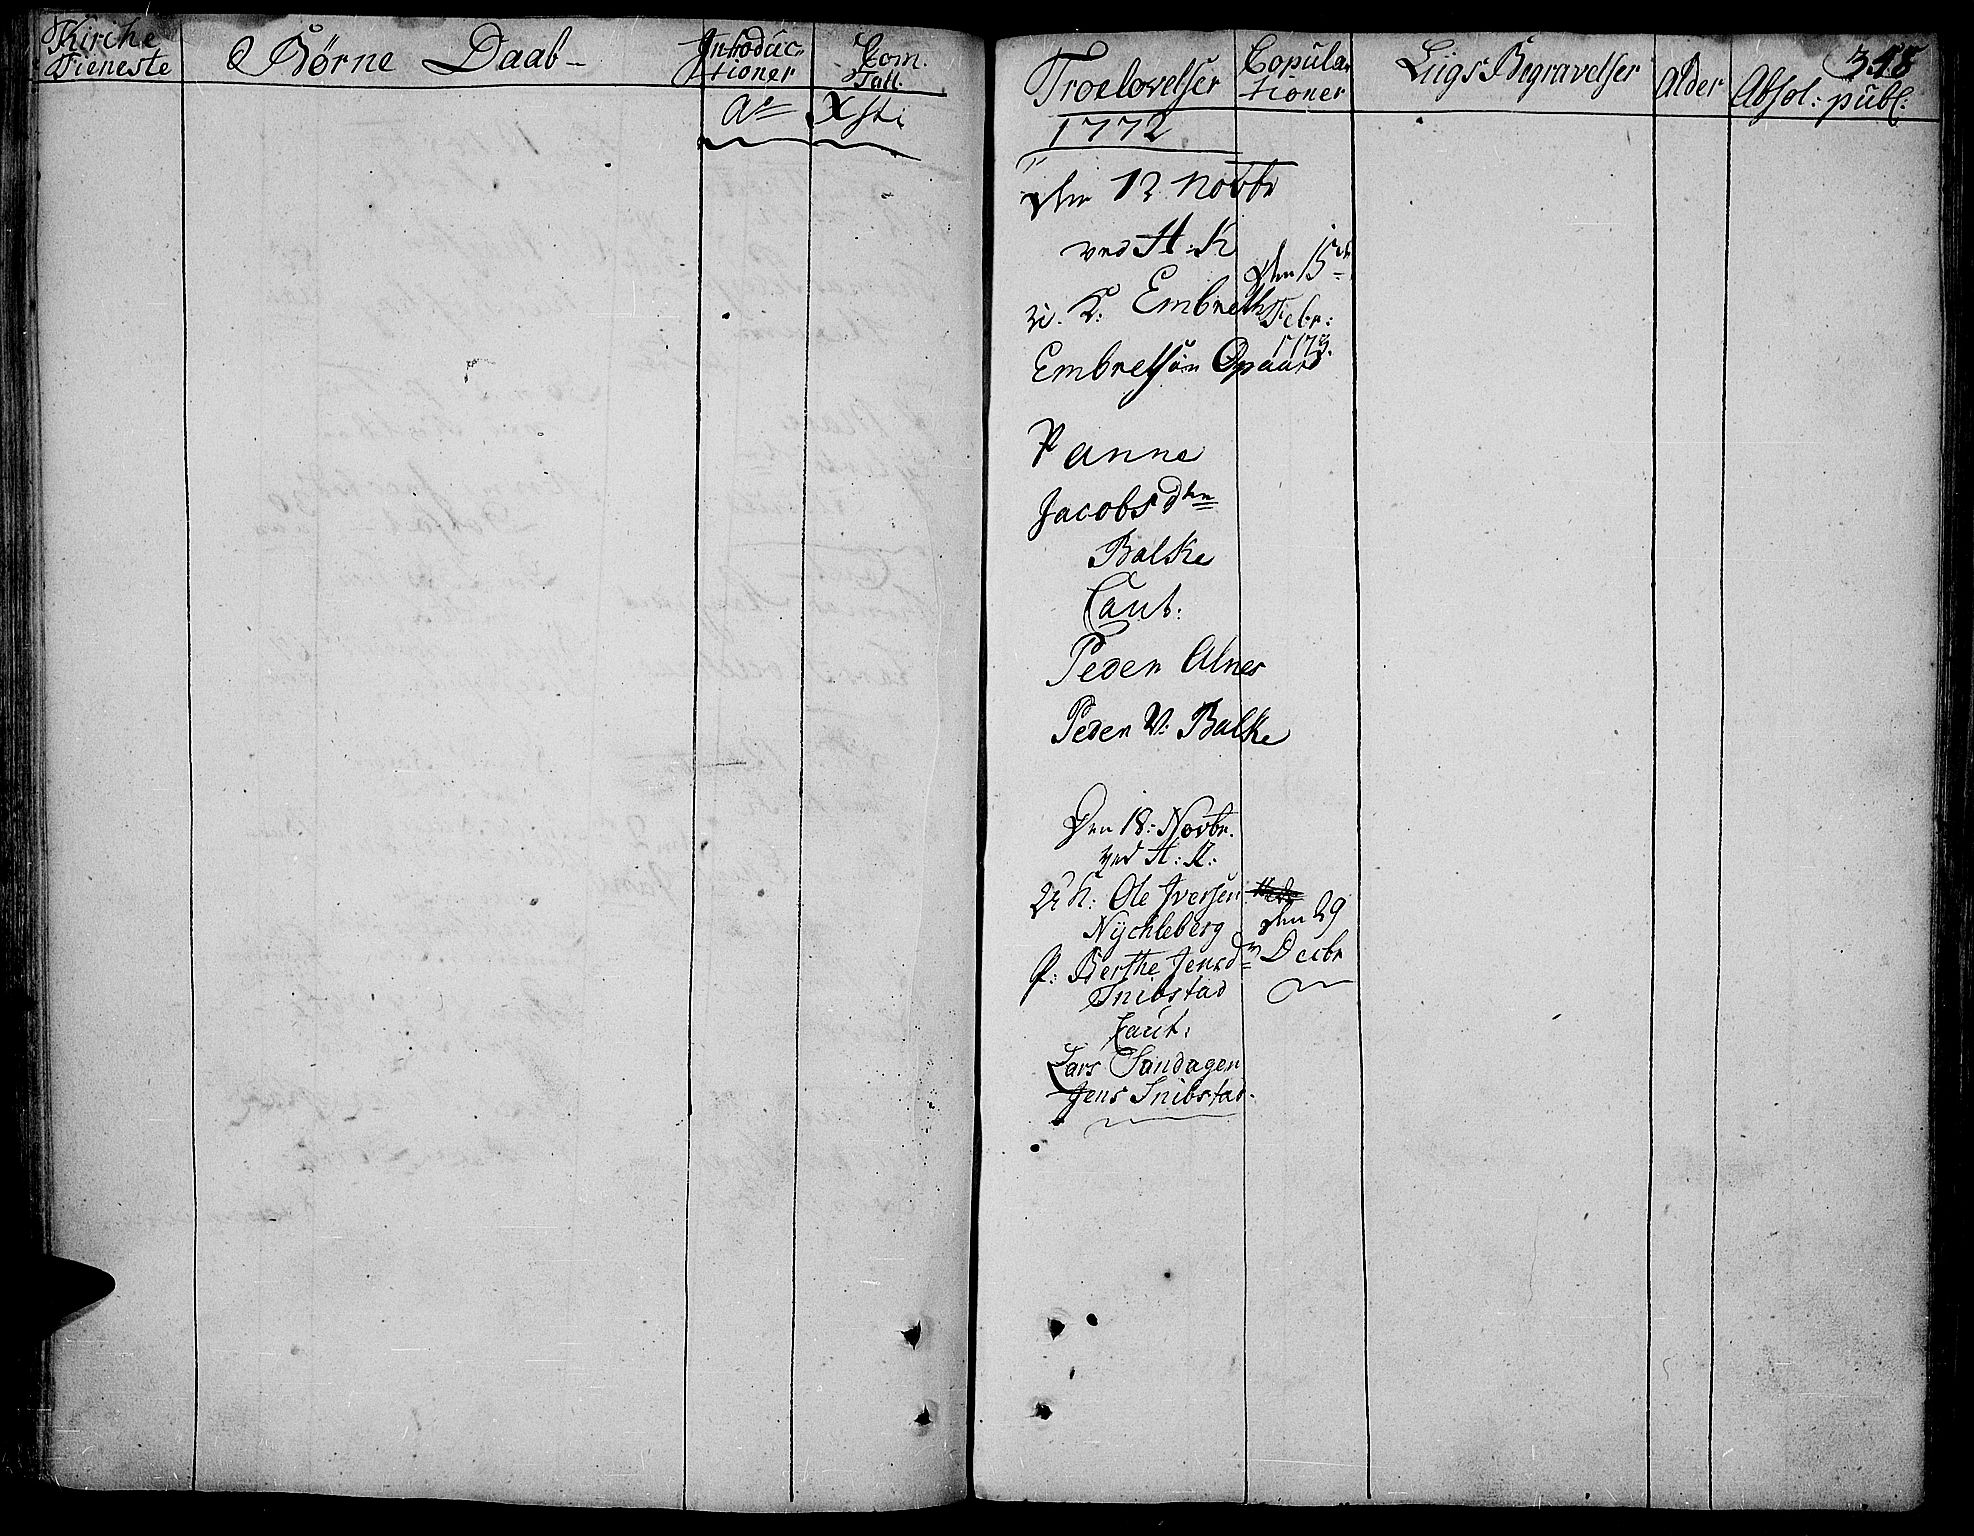 Kirche
Tieneste
Børne Daab
Introduc-
tioner
Com.
Tall.
Ao Xsti
Troelovelser
Copula-
tioner
Liigs Begravelser
Alder
Absol: publ:
1772
den 13 Novbr
ved H: K
U. K: Embreth
Embretsøn Opaard
P anne
Jacobsdtr
Balke
Caut:
Peder Alnes
Peder V: Balke
Den 15de
Febr:
1773.
Den 18: Novbr.
ved H: K:
U K: Ole Iversen
Nychleberg
P: Berthe Jensd
Snibstad
Caut:
Lars Sandagen
Jens Snibstad.
den 29
Decbr